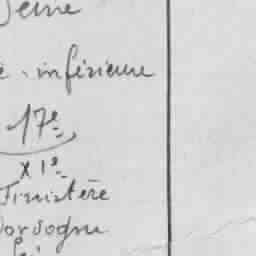 Seine
e. inférieure
17e
XIe
Finistère
Dordogne